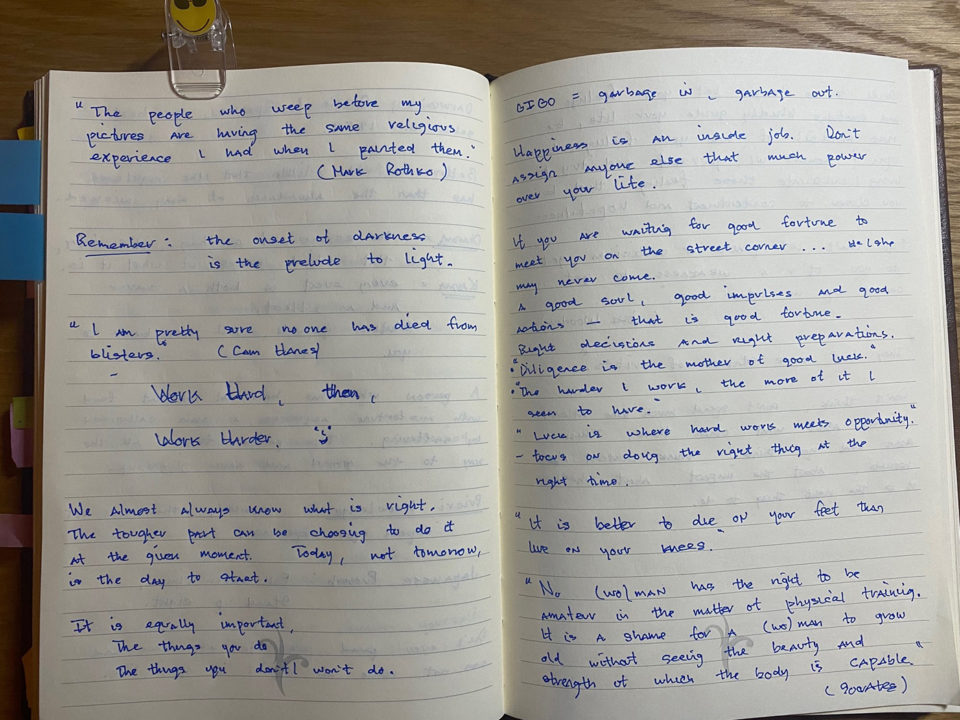 "The people who weep before my
pictures are having the same religious
experience I had when I painted them."
(Mark Rothko)
Remember: the onset of darkness
is the prelude to light.
"I am pretty sure no one has died from
blisters." (Cam Hanes)
Work Hard, then,
Work Harder.
We almost always know what is right.
The tougher part can be choosing to do it
at the given moment. Today, not tomorrow,
is the day to start.
It is equally important,
The things you do
The things you don't/won't do.
GIGO = garbage in, garbage out.
Happiness is an inside job. Don't
assign anyone else that much power
over your life.
If you are waiting for good fortune to
meet you on the street corner... He/she
may never come.
A good soul, good impulses and good
actions - that is good fortune.
Right decisions and right preparations.
"Diligence is the mother of good luck."
"The harder I work, the more of it I
seem to have."
"Luck is where hard work meets opportunity."
- focus on doing the right thing at the
right time.
"It is better to die on your feet than
live on your knees."
"No (wo)man has the right to be
amateur in the matter of physical training.
It is a shame for a (wo)man to grow
old without seeing the beauty and
strength of which the body is capable."
(Socrates)